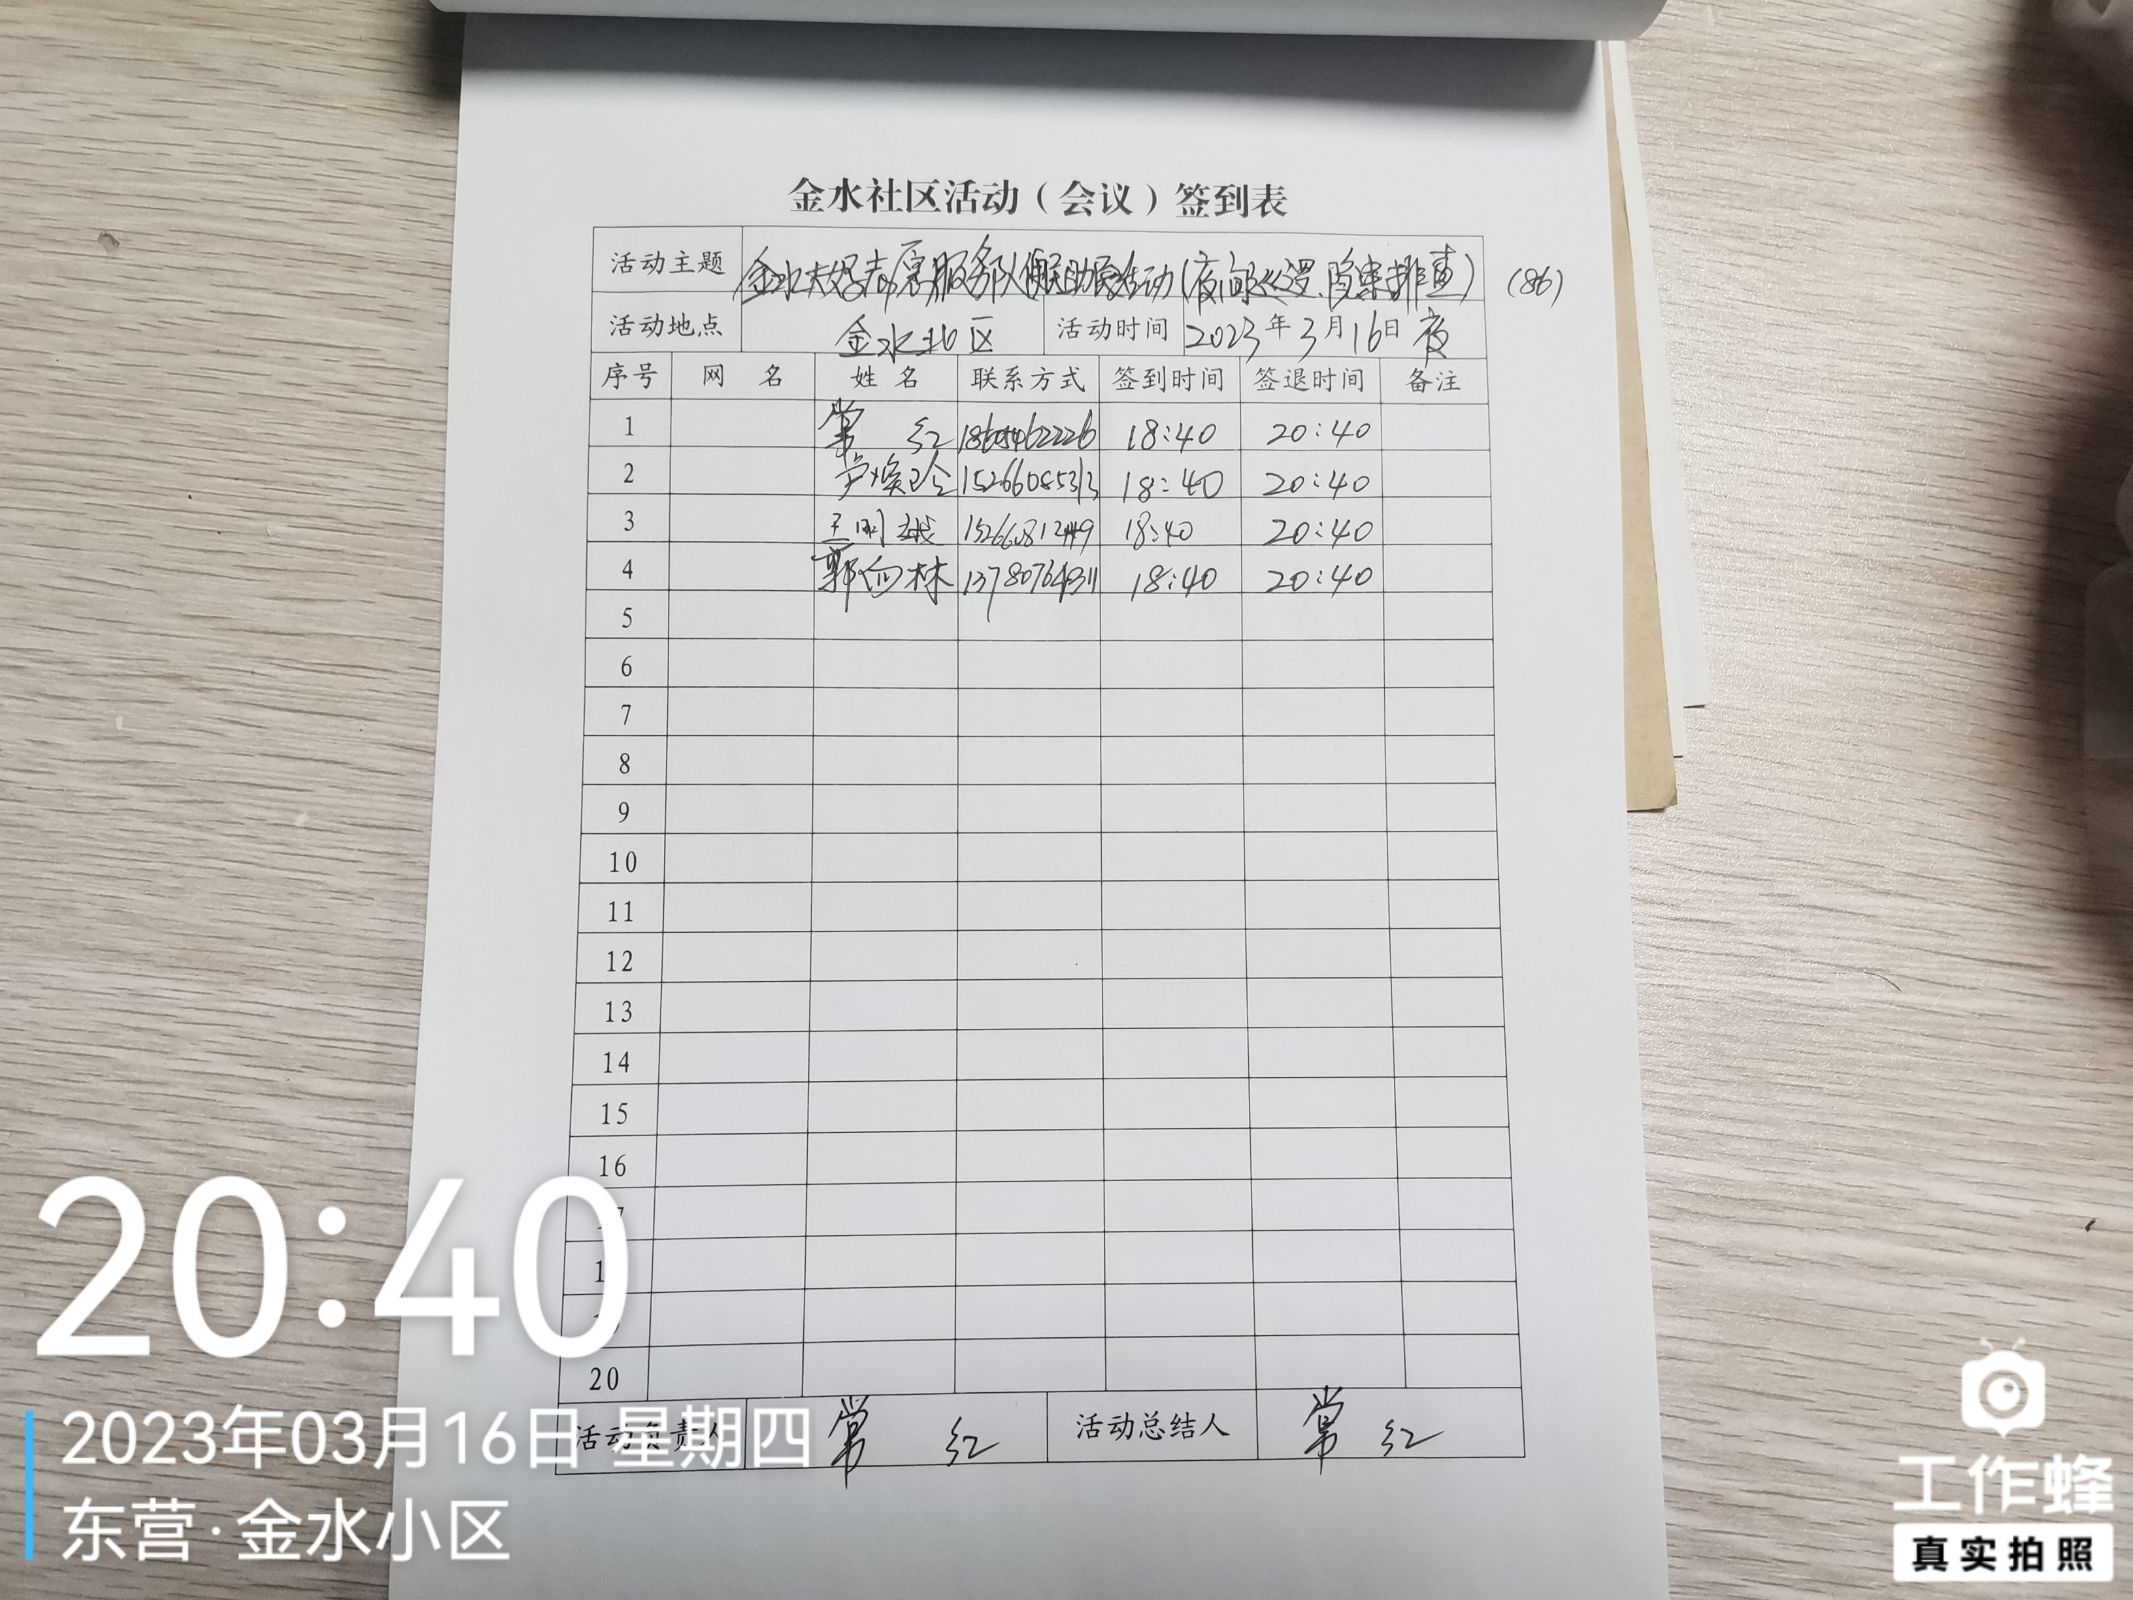 金水社区活动（会议）签到表
活动主题 金水大嫂志愿服务队 助 活动(夜间巡逻、隐患排查) (86)
活动地点 金水北区 活动时间 2023年3月16日 夜
序号 网 名 姓 名 联系方式 签到时间 签退时间 备注
1 常 红 18605462226 18:40 20:40
2 卢焕 15266085313 18:40 20:40
3 王明 18:40 20:40
4 郭向林 18:40 20:40
5
6
7
8
9
10
11
12
13
14
15
16
20
活动负责人 常 红 活动总结人 常 红
20:40
2023年03月16日 星期四
东营·金水小区
工作蜂
真实拍照